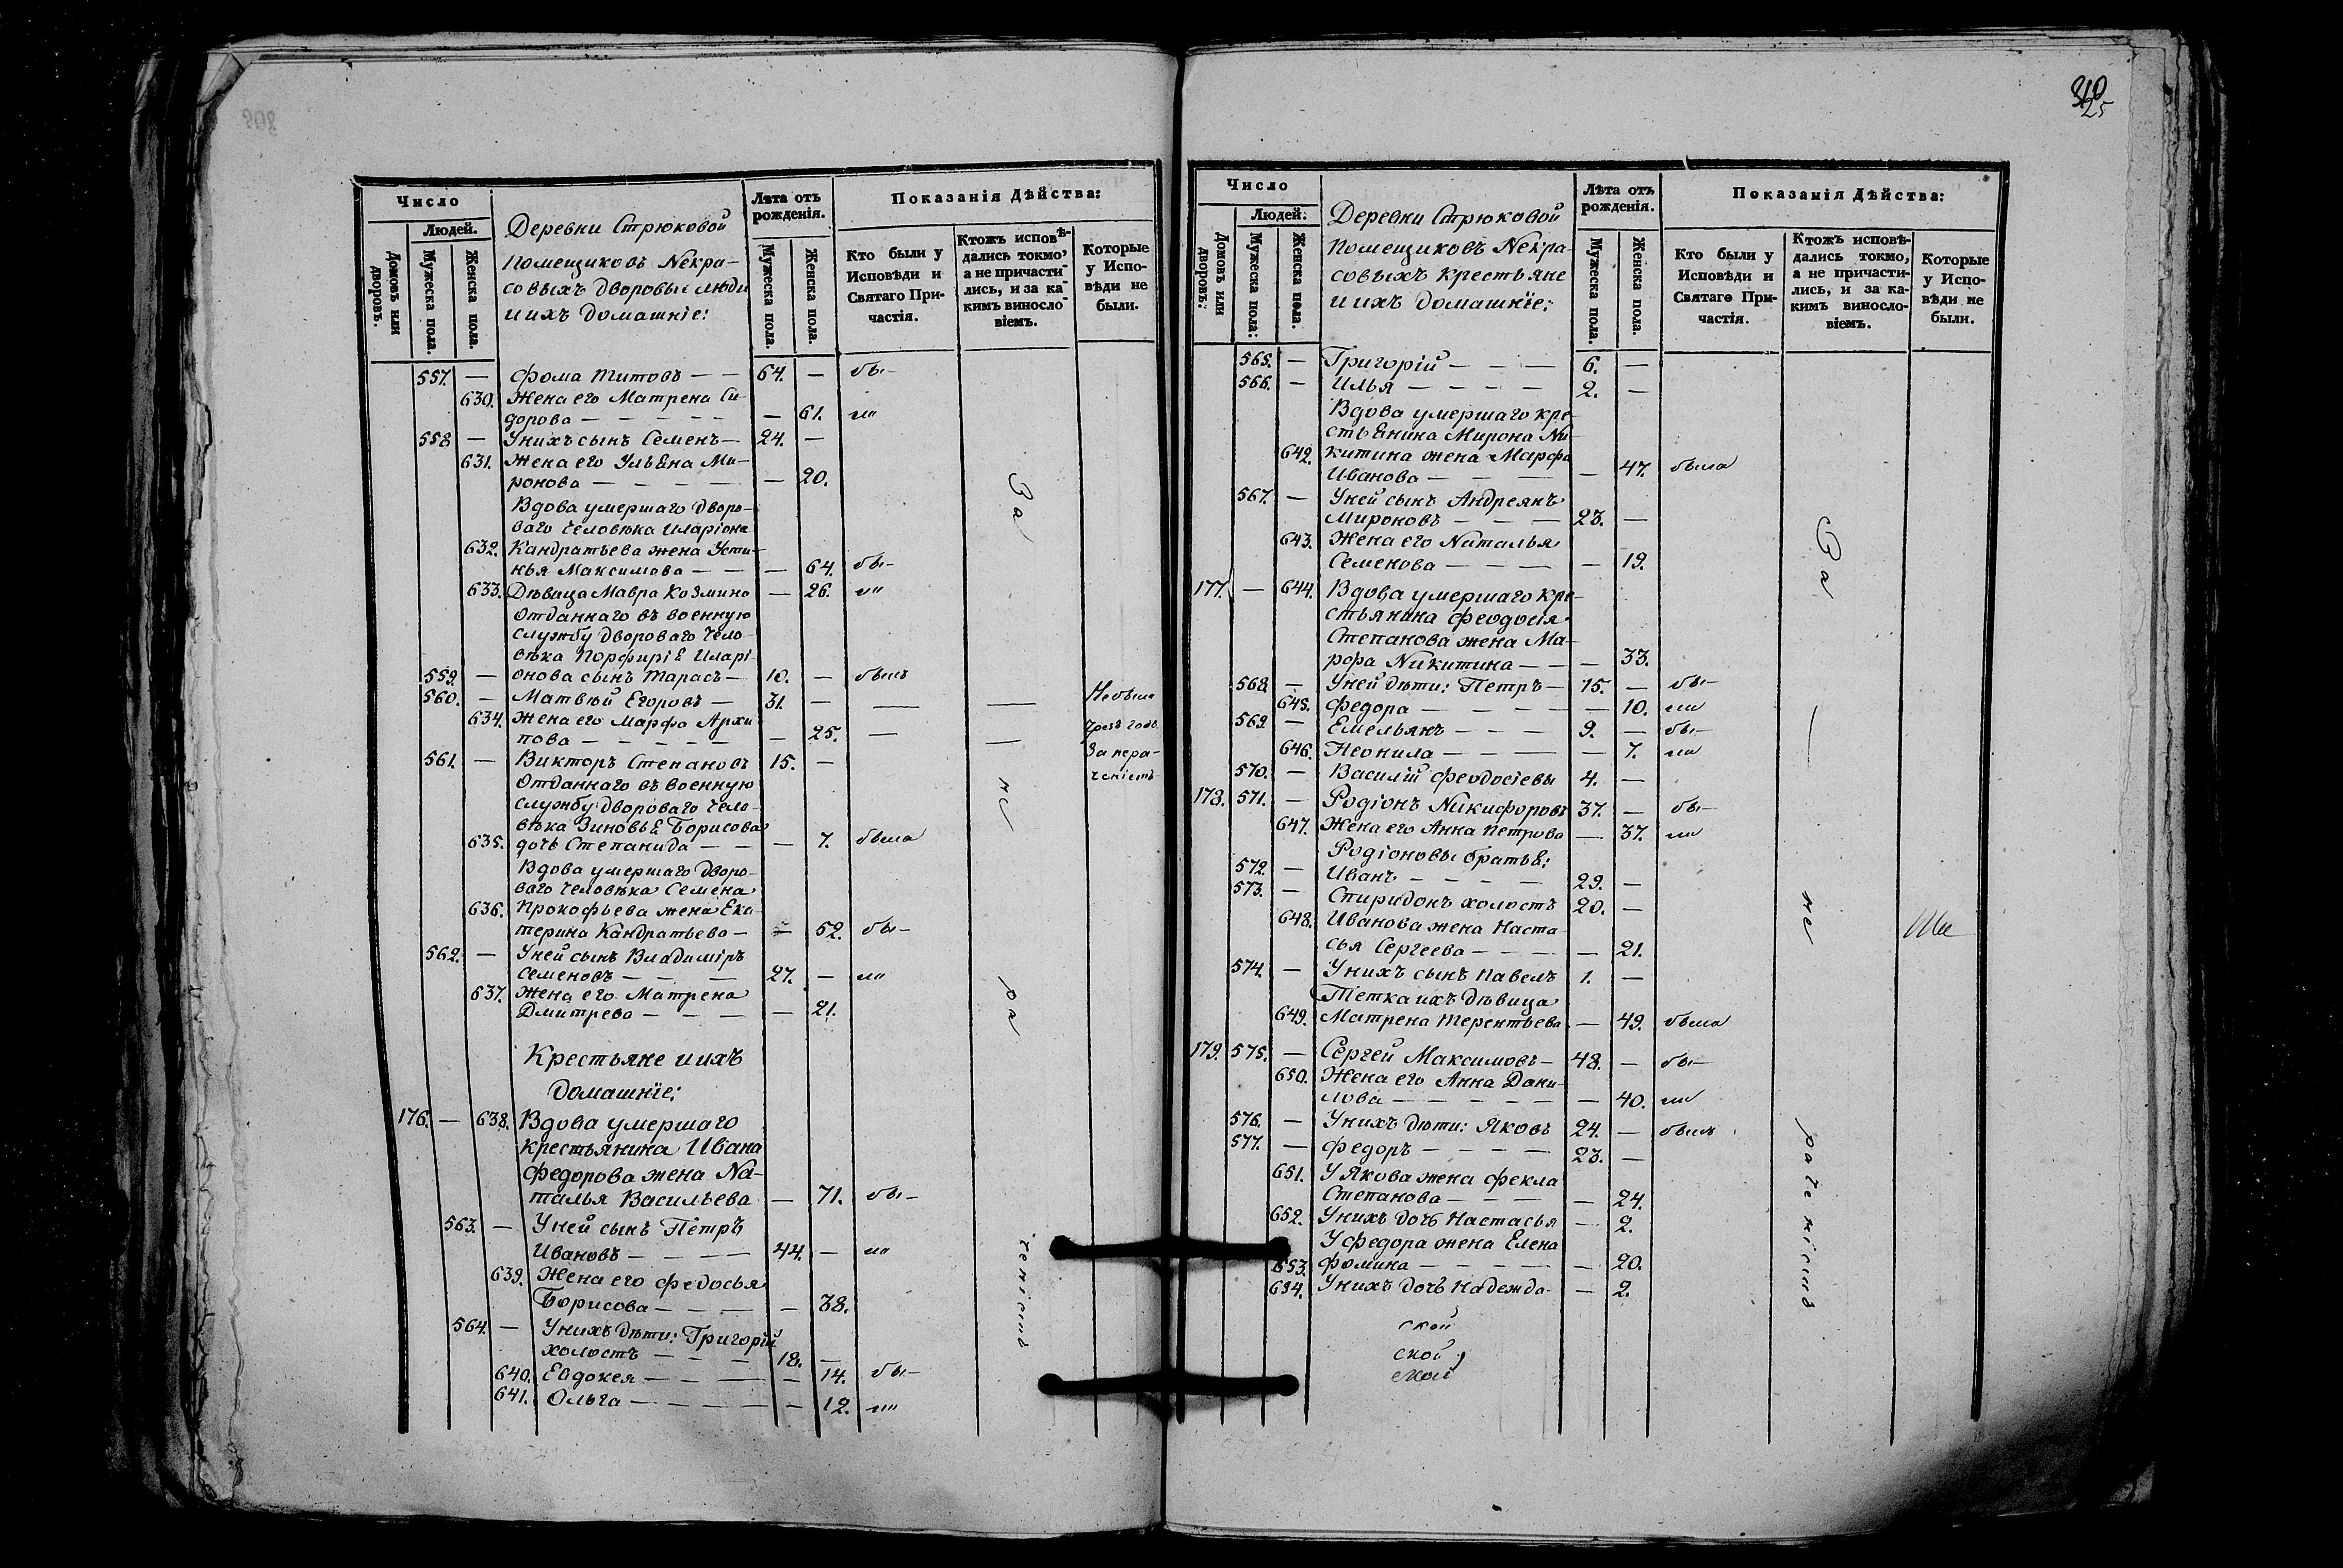 310
25
Число
Людей.
Домовъ или дворовъ.
Мужеска пола.
Женска пола.
Деревни Стрюковой
помещиковъ Некра-
совыхъ дворовые люди
и ихъ домашніе:
Лѣта отъ рожденія.
Мужеска пола.
Женска пола.
Показанія Дѣйства:
Кто были у Исповѣди и Святаго При-частія.
Ктожъ исповѣ-дались токмо, а не причасти-лись, и за ка-кимъ винosло-віемъ.
Которые у Испо-вѣди не были.
557. — Фома Титовъ — — 64. — бы-
630. Жена его Матрена Си-
дорова — — — — — 61. ли
558 — У нихъ сынъ Семенъ — 24. —
631. Жена его Ульяна Ми-
ронова — — — — — 20.
Вдова умершаго дворо-
ваго человѣка Иларіона
632. Кандратьева жена Усти-
нья Максимова — — — 64. бы-
633. Дѣвица Мавра Козмина — 26. ли
Отданнаго въ военную
службу двороваго чело-
вѣка Порфирія Иларі-
559. — онова сынъ Тарасъ — 10. — былъ
560. — Матвѣй Егоровъ — 31. — — — Небыли
634. Жена его Марфа Архи-
пова — — — — — 25. — —
За нера-
ченіемъ
561. — Викторъ Степановъ 15. —
Отданнаго въ военную
службу двороваго чело-
вѣка Зиновья Борисова
635. дочь Степанида — — — 7. была
Вдова умершаго дворо-
ваго человѣка Семена
636. Прокофьева жена Ека-
терина Кандратьева — — 52. бы-
562. — У ней сынъ Владиміръ
Семеновъ — — — 27. — ли
637. Жена его Матрена
Дмитрева — — — — 21.
Крестьяне и ихъ
домашніе:
176. — 638. Вдова умершаго
крестьянина Ивана
Федорова жена На-
талья Васильева — 71. бы-
563. — У ней сынъ Петръ
Ивановъ — — — — 44. — ли
639. Жена его Федосья
Борисова — — — — 38.
564. — У нихъ дѣти: Григорій
холостъ — — — 18. —
640. Евдокея — — — — 14. бы-
641. Ольга — — — — — 12. ли
За не ра ченіемъ
Число
Людей:
Домовъ или дворовъ:
Мужеска пола:
Женска пола.
Деревни Стрюковой
помещиковъ Некра-
совыхъ крестьяне
и ихъ домашніе:
Лѣта отъ рожденія.
Мужеска пола.
Женска пола.
Показанія Дѣйства:
Кто были у Исповѣди и Святаго При-частія.
Ктожъ исповѣ-дались токмо, а не причасти-лись, и за ка-кимъ винosло-віемъ.
Которые у Испо-вѣди не были.
565. — Григорій — — — 6. —
566. — Илья — — — — 2. —
Вдова умершаго кре-
стьянина Мирона Ни-
642. китина жена Марфа
Иванова — — — — 47. была
567. — У ней сынъ Андреянъ
Мироновъ — — — 23. —
643. Жена его Наталья
Семенова — — — — 19.
177. — 644. Вдова умершаго кре-
стьянина Феодосія
Степанова жена Ма-
рфа Никитина — — — 33.
568 — У ней дѣти: Петръ — 15. — бы-
645. Федора — — — — — 10. ли
569. — Емельянъ — — — 9. — бы-
646. Неонила — — — — 7. ли
570. — Василій Феодосіевы 4. —
178. 571. — Родіонъ Никифоровъ 37. — бы-
647. Жена его Анна Петрова — 37. ли
Родіоновы братья:
572. — Иванъ — — — — 29. —
573. — Спиридонъ холостъ 20. —
648. Иванова жена Наста-
сья Сергеева — — — — 21.
574. — У нихъ сынъ Павелъ 1. —
Тетка ихъ дѣвица
649. Матрена Терентьева — 49. была
179. 575. — Сергей Максимовъ — 48. — бы-
650. Жена его Анна Дани-
лова — — — — — 40. ли
576. — У нихъ дѣти: Яковъ 24. — былъ
577. — Федоръ — — — — 23. —
651. У Якова жена Фекла
Степанова — — — — 24.
652. У нихъ дочь Настасья — 2.
У Федора жена Елена
653. Фомина — — — — — 20.
654. У нихъ дочь Надежда — 2.
За — не раченіемъ
ской
ской